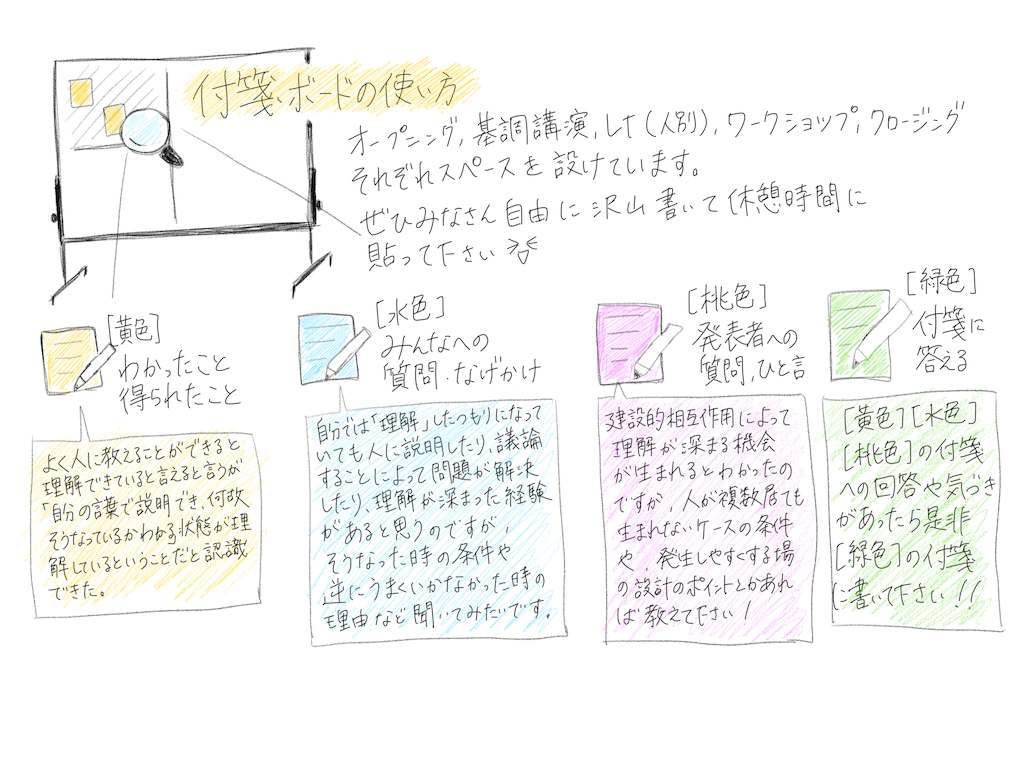 付箋ボードの使い方
オープニング,基調講演,Lt(人別),ワークショップ,クロージング
それぞれスペースを設けています。
ぜひみなさん自由に沢山書いて休憩時間に
貼って下さい
[黄色]
わかったこと
得られたこと
よく人に教えることができると
理解できていると言えると言うが
「自分の言葉で説明でき、何故
そうなっているかわかる状態が理
解しているということだと認識
できた。
[水色]
みんなへの
質問.なげかけ
自分では「理解」したつもりになって
いても人に説明したり、議論
することによって問題が解決
したり、理解が深まった経験
があると思うのですが,
そうなった時の条件や
逆にうまくいかなかった時の
理由など聞いてみたいです。
[桃色]
発表者への
質問,ひと言
建設的相互作用によって
理解が深まる機会
が生まれるとわかったの
ですが,人が複数居ても
生まれないケースの条件
や,発生しやすくする場
の設計のポイントとかあれ
ば教えて下さい!
[緑色]
付箋に
答える
[黄色][水色]
[桃色]の付箋
への回答や気づき
があったら是非
[緑色]の付箋
に書いて下さい!!